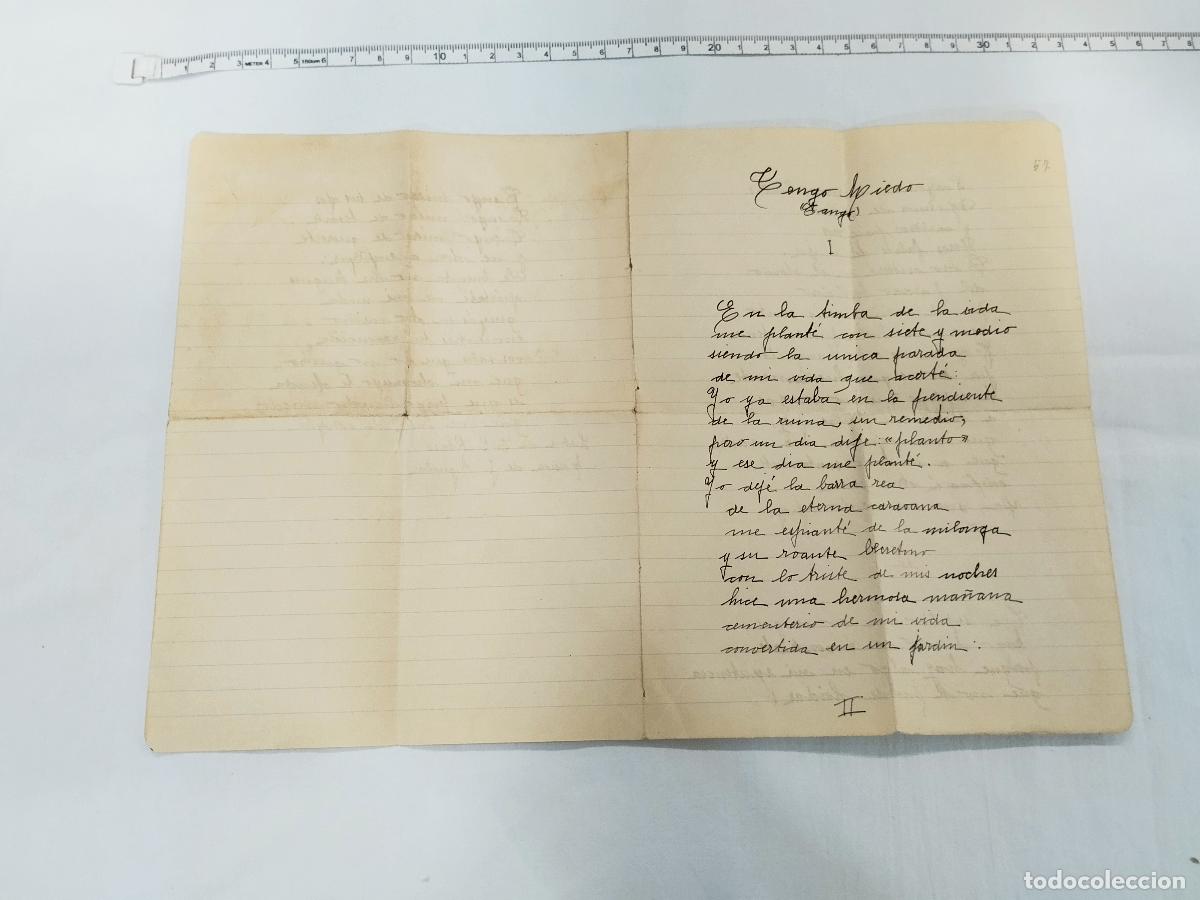 1 2 3 METER 4 5 150cm 6 7 8 9 10 1 2 3 4 5 6 7 8 9 20 1 2 3 4 5 6 7 8 9 30 1 2 3 4 5 6 7 8
57
Tengo Miedo
"Tango"
I
En la timba de la vida
me planté con siete y medio
siendo la unica parada
de mi vida que acerté:
Yo ya estaba en la pendiente
de la ruina, un remedio,
pero un dia dije: "planto"
y ese dia me planté.
Yo dejé la barra rea
de la eterna caravana
me espianté de la milonga
y su roante berretino
con lo triste de mis noches
hice una hermosa mañana
cementerio de mi vida
convertida en un jardin:
II
todocoleccion